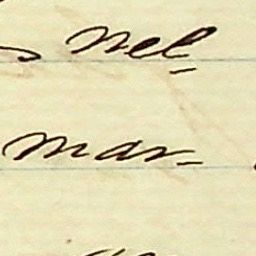 nel-
mar-